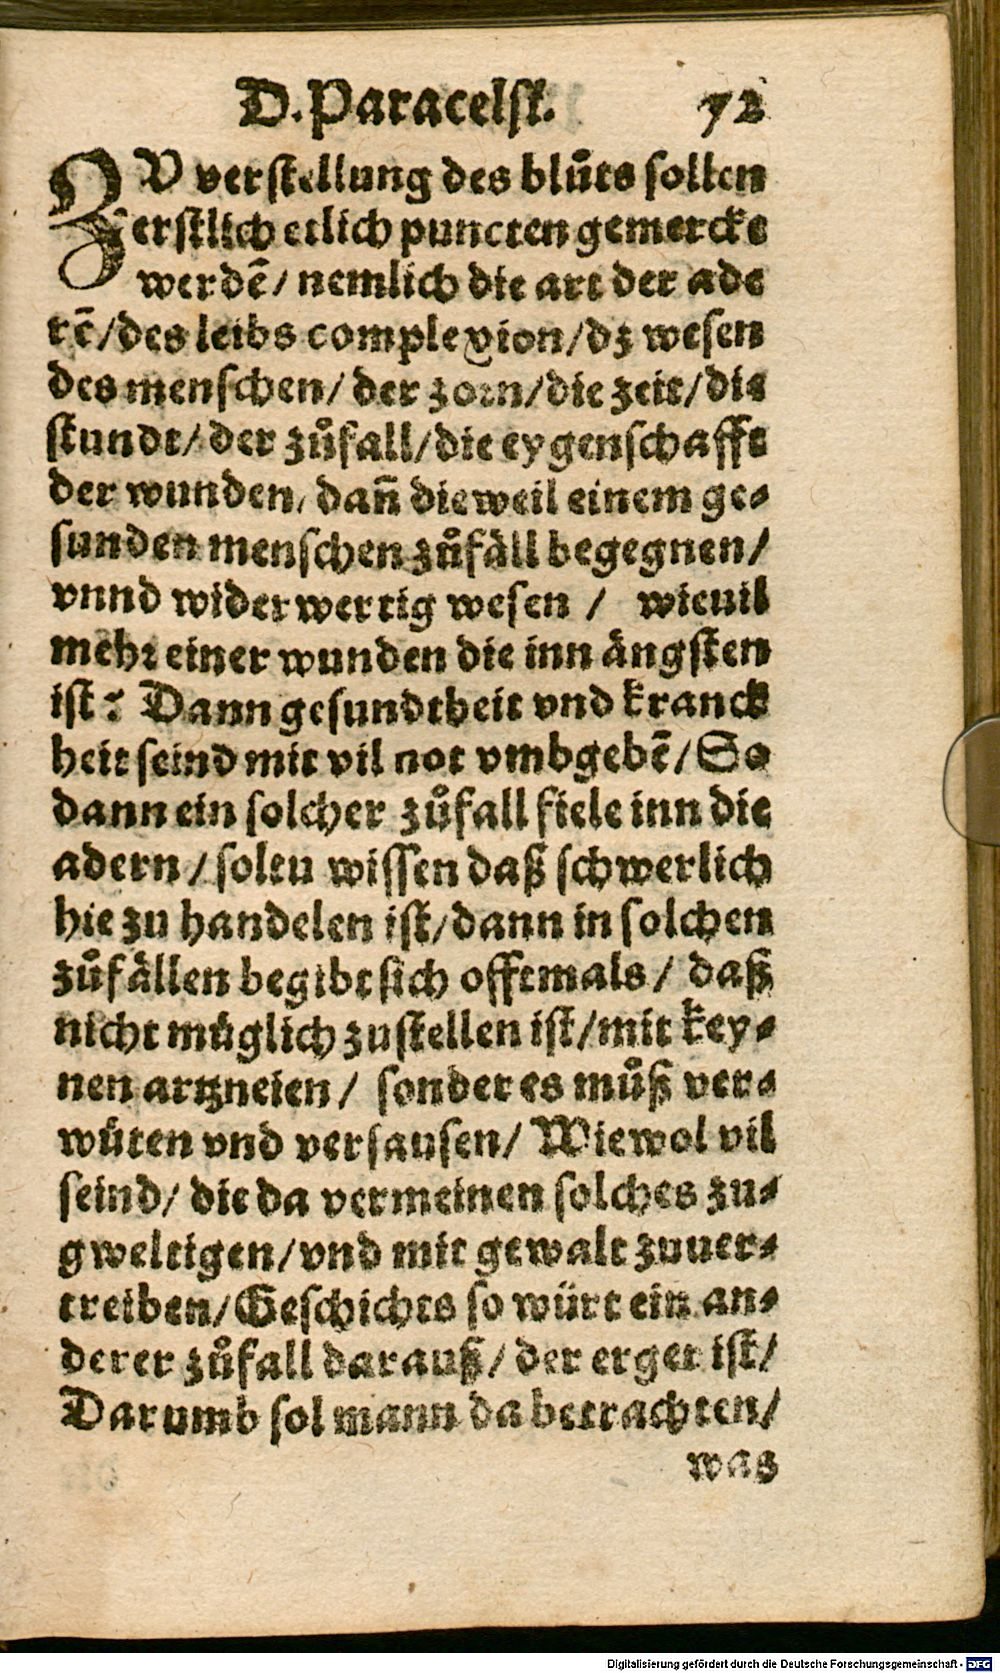 D. Paracelsi. 72
ZV verstellung des blůts sollen
erstlich etlich puncten gemerckt
werdē/ nemlich die art der ade
rē/des leibs complexion/dz wesen
des menschen/ der zorn/die zeit/die
stundt/ der zůfall/die eygenschafft
der wunden/ dañ dieweil einem ge-
sunden menschen zůfäll begegnen/
vnnd widerwertig wesen / wieuil
mehr einer wunden die inn ängsten
ist? Dann gesundtheit vnd kranck
heit seind mit vil not vmbgebē/ So
dann ein solcher zůfall fiele inn die
adern / soltu wissen daß schwerlich
hie zu handelen ist/dann in solchen
zůfällen begibt sich offtmals / daß
nicht müglich zustellen ist/mit key-
nen artzneien / sonder es můß ver-
wüten vnd versausen/ Wiewol vil
seind/ die da vermeinen solches zu-
gweltigen/vnd mit gewalt zuuer-
treiben/Geschichts so würt ein an-
derer zůfall darauß/ der erger ist/
Darumb sol mann da betrachten/
was
Digitalisierung gefördert durch die Deutsche Forschungsgemeinschaft - DFG